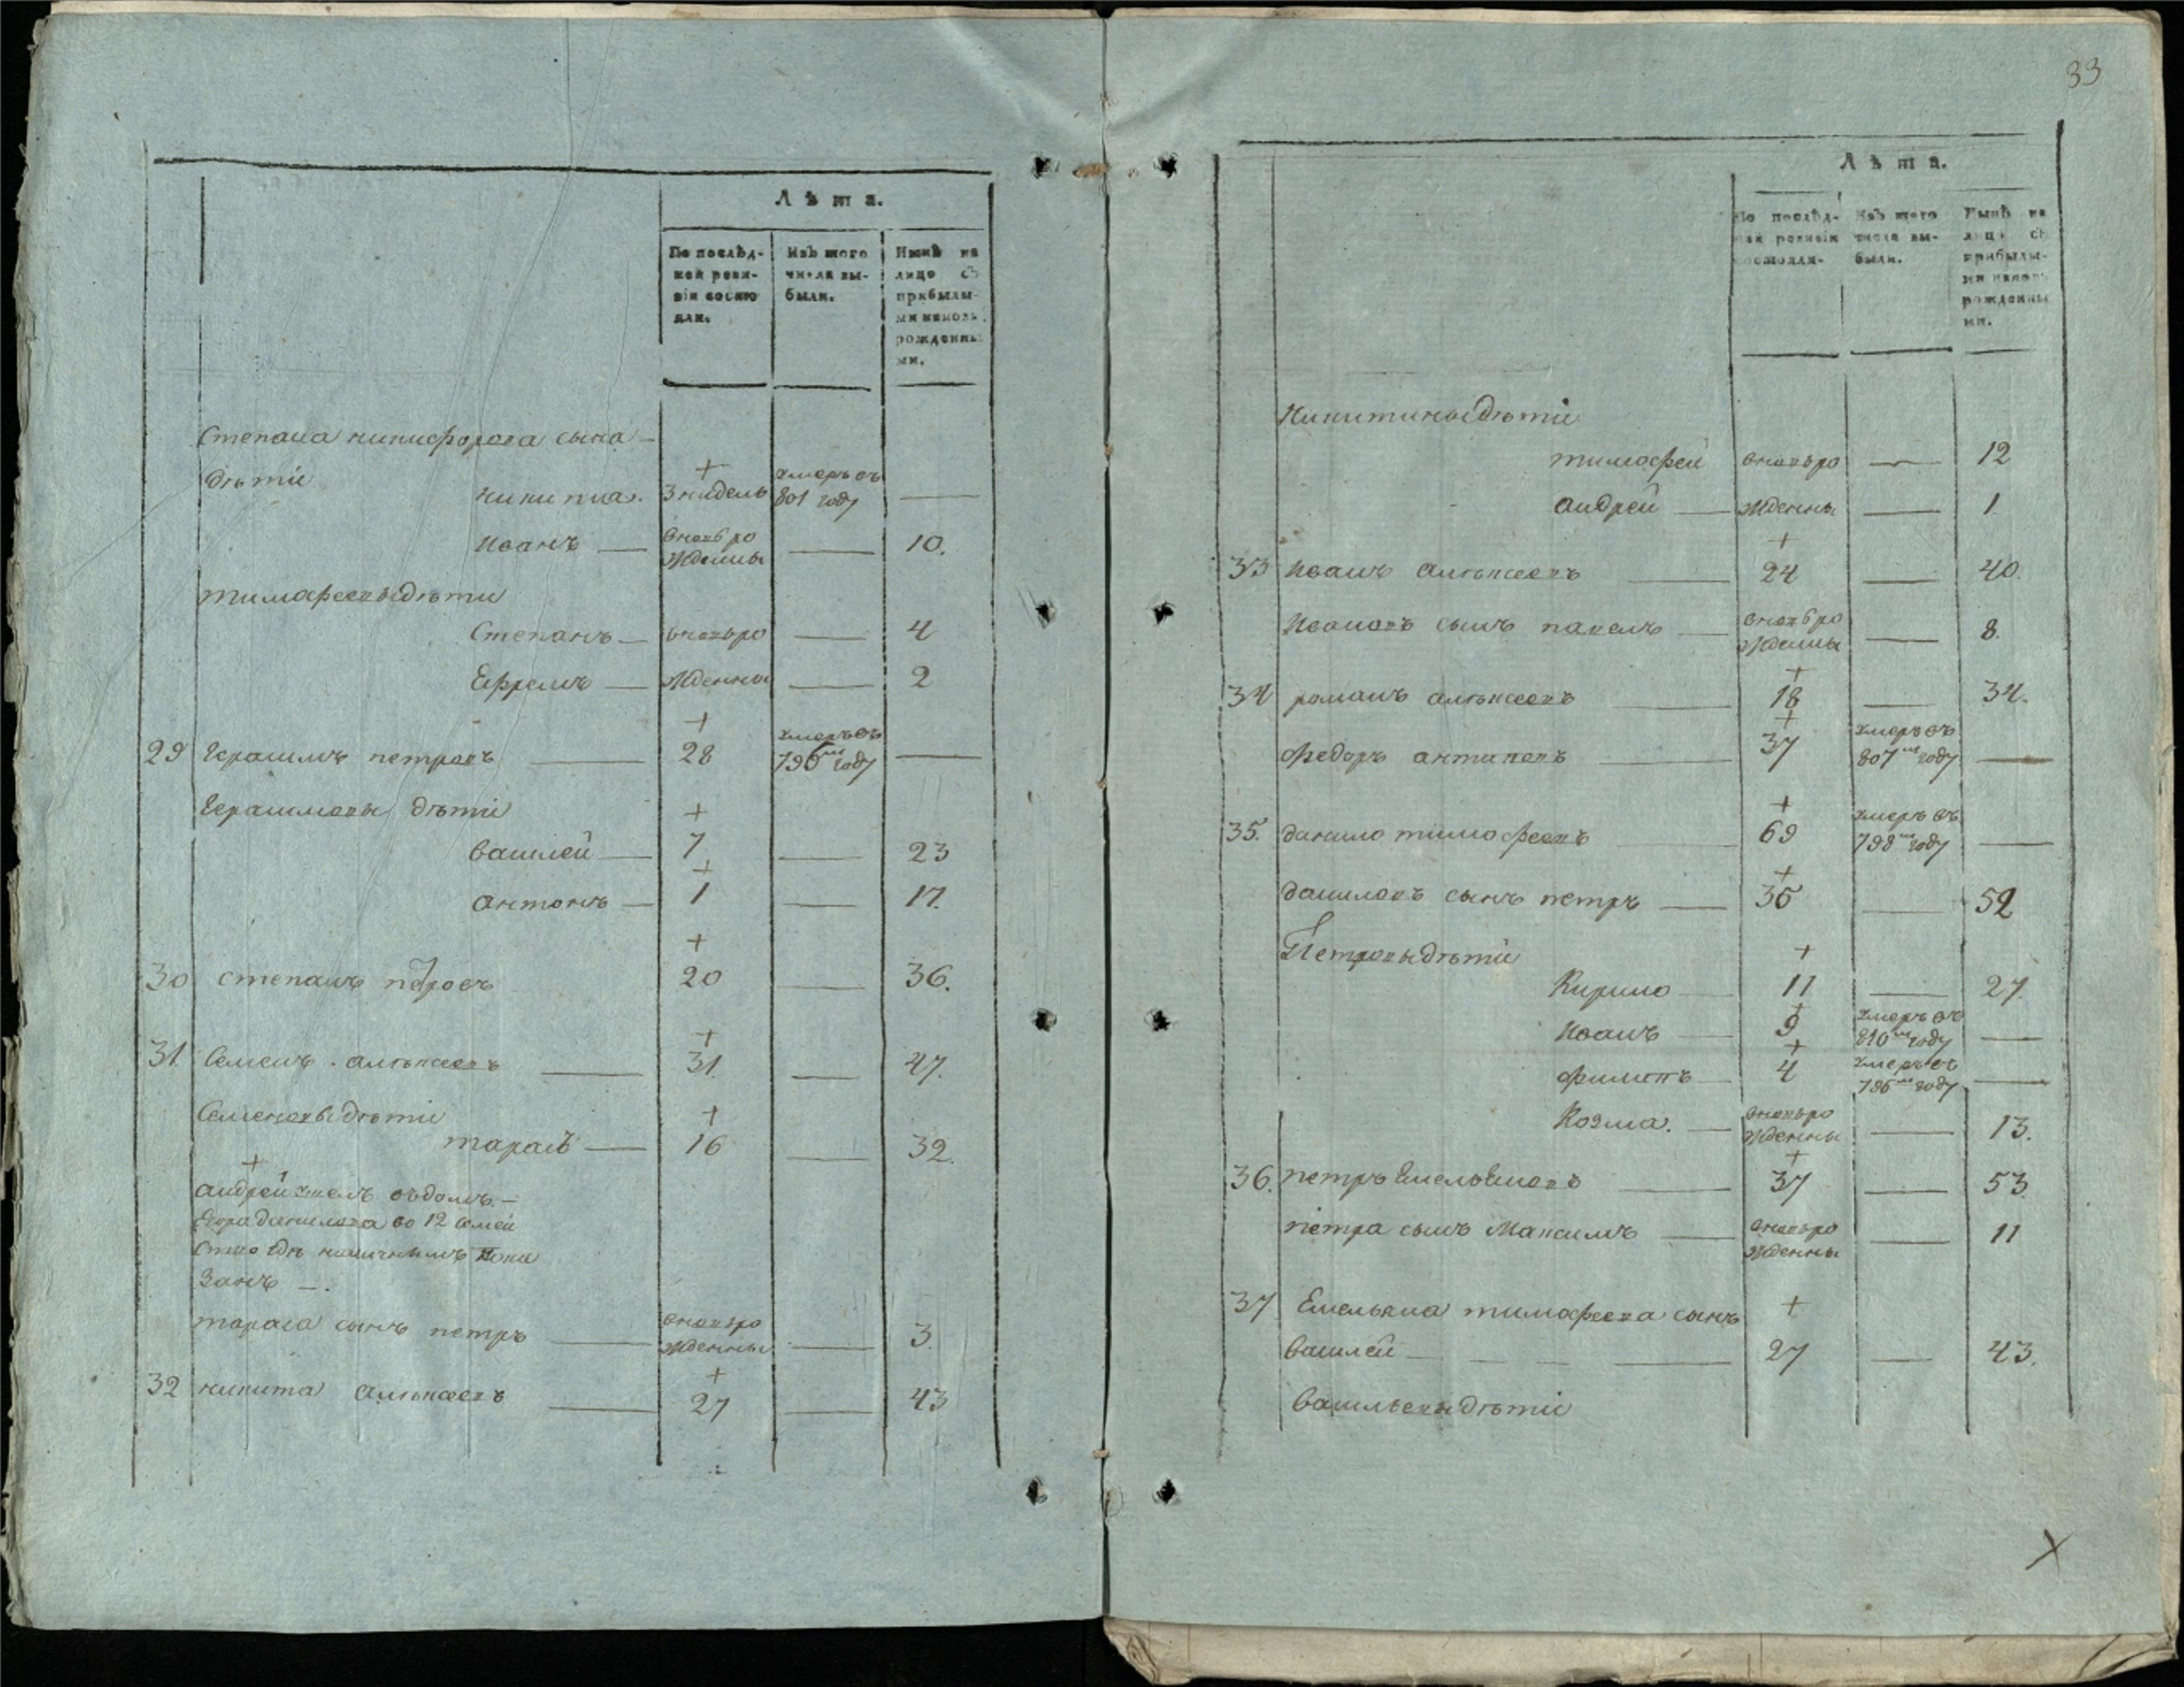 Лѣта.
По послѣд-
ней реви-
зіи состо
яли.
Изъ того
числа вы-
были.
Нынѣ на
лицо съ
прибылы-
ми и новь
рожденны
ми.
Степана никифорова сына —
дѣти
никита. + 3 нидель умеръ въ 801 году —
Иванъ — вновь рожденны — 10.
тимофеевы дѣти
Степанъ — вновь ро — 4
Ефремъ — жденны — 2
29 Герасимъ петровъ — + 28 умеръ въ 796м году —
Герасимовы дѣти
Василей — + 7 — 23
антонъ — + 1 — 17.
30 степанъ петровъ + 20 — 36.
31. Семенъ алѣксеевъ — + 31. — 47.
Семеновы дѣти
тарасъ — + 16 — 32.
+
андрей въ домъ —
Егора данилова во 12 семей
наличнымъ пока
занъ —.
тараса сынъ петръ — вновь рожденны — 3.
32 никита алѣксеевъ — + 27 — 43
33
Лѣта.
По послѣд-
ней ревизіи
состояли-
Изъ того
числа вы-
были.
Нынѣ на
лицо съ
прибылы-
ми и новь
рожденны
ми.
Никитины дѣти
тимофей вновь ро — 12
андрей — жденны — 1
33 Иванъ алѣксеевъ — + 24 — 40.
Ивановъ сынъ павелъ — вновь рожденны — 8.
34 романъ алѣксеевъ — + 18 — 34.
федоръ антиповъ — + 37 умеръ въ 807м году —
35. данило тимофеевъ — + 69 умеръ въ 798м году —
даниловъ сынъ петръ — + 36 — 52
Петровы дѣти
Кирило — + 11 — 27.
Иванъ — + 9 умеръ въ 810м году —
филипъ — + 4 умеръ въ 796м году —
Козма. — вновь рожденны — 13.
36. петръ Емельяновъ — + 37 — 53.
петра сынъ Максимъ — вновь рожденны — 11
37 Емельяна тимофеева сынъ +
Василей — 27 — 43.
Васильевы дѣти